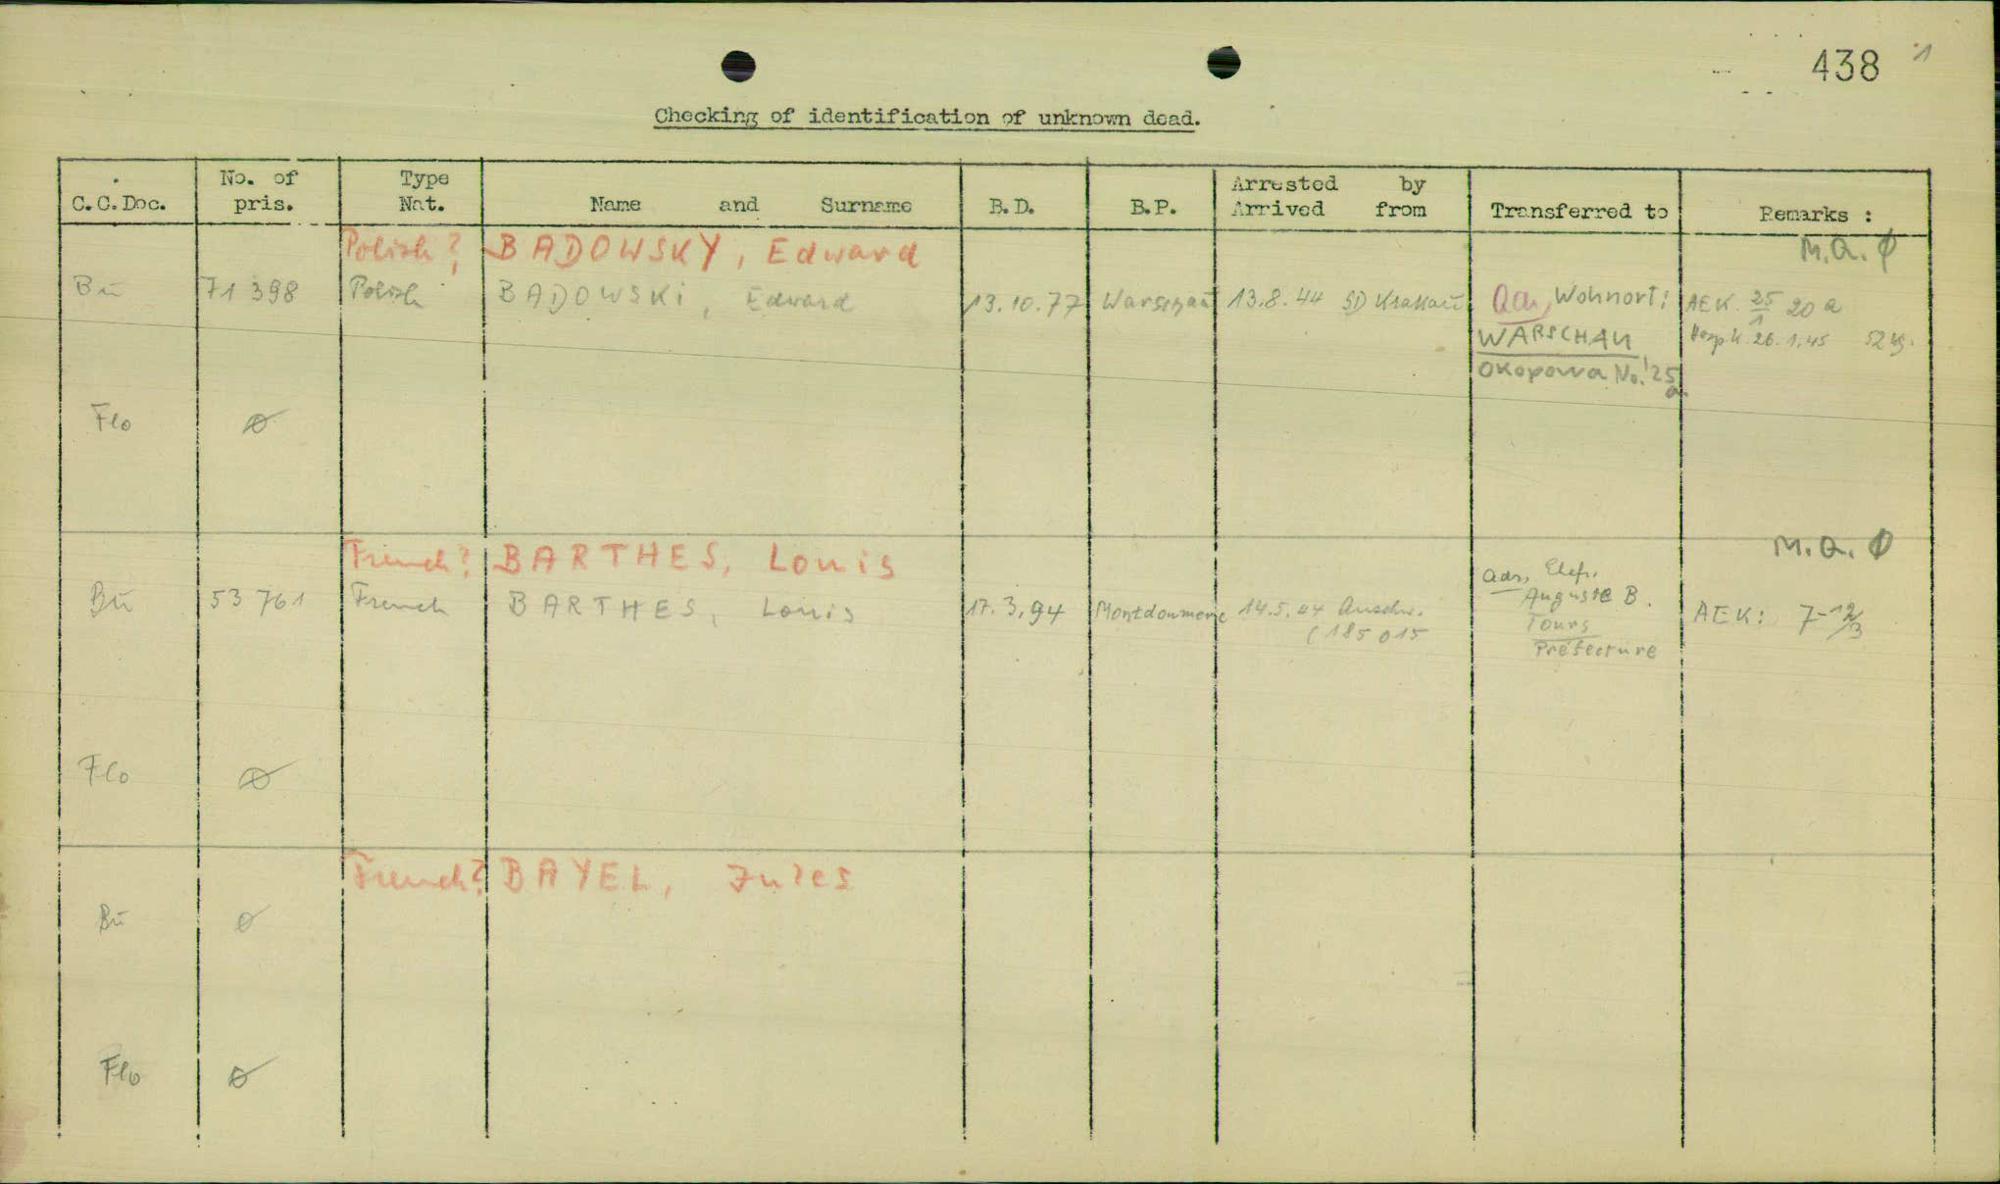 438 1
Checking of identification of unknown dead.
C.C.Doc. No. of pris. Type Nat. Name and Surname B.D. B.P. Arrested by Arrived from Transferred to Remarks :
Polish? BADOWSKY, Edward M.Q. Ø
Bu 71 398 Polish BADOWSKi, Edward 13.10.77 Warschau 13.8.44 SD Krakau Adr, Wohnort: AEK. 25/1 20 a
WARSCHAU 26.1.45 52 kg.
Okopowa No. 25
a
Flo Ø
French? BARTHES, Louis M.Q. Ø
Bu 53 761 French BARTHES, Louis 17.3.94 14.5.44 Auschw. Adr,
Auguste B. AEK:
(185 015 Tours
Préfecture
Flo Ø
French? BAYEL, Jules
Bu Ø
Flo Ø